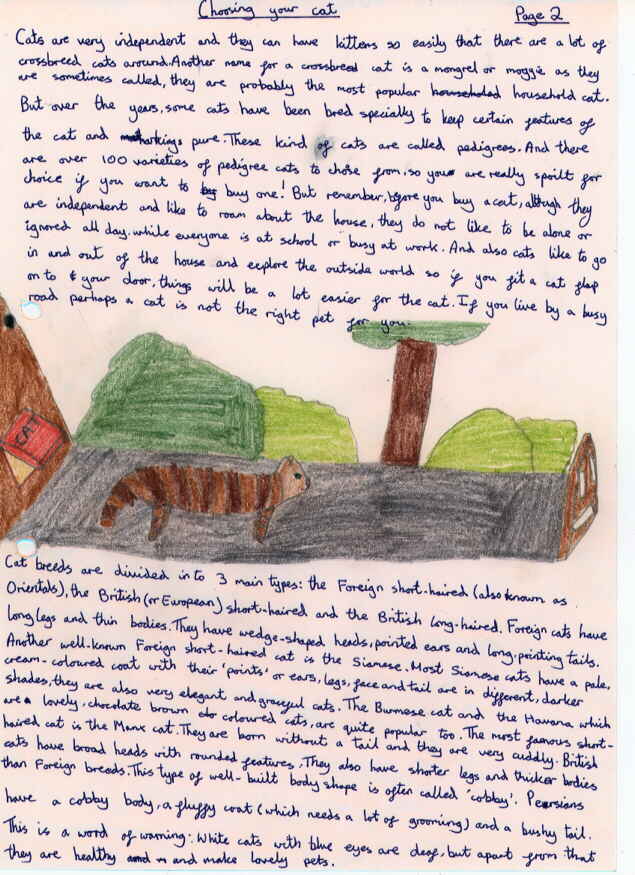 Choosing your cat
Page 2
Cats are very independent and they can have kittens so easily that there are a lot of
crossbreed cats around. Another name for a crossbreed cat is a mongrel or moggie as they
are sometimes called, they are probably the most popular househoded household cat.
But over the years, some cats have been bred specially to keep certain features of
the cat and markings pure. These kind of cats are called pedigrees. And there
are over 100 varieties of pedigree cats to chose from, so you are really spoilt for
choice if you want to buy one! But remember, before you buy a cat, although they
are independent and like to roam about the house, they do not like to be alone or
ignored all day. while everyone is at school or busy at work. And also cats like to go
in and out of the house and explore the outside world so if you fit a cat flap
on to your door, things will be a lot easier for the cat. If you live by a busy
road perhaps a cat is not the right pet for you.
CAT
Cat breeds are divided in to 3 main types: the Foreign short-haired (also known as
Orientals), the British (or European) short-haired and the British long-haired. Foreign cats have
long legs and thin bodies. They have wedge-shaped heads, pointed ears and long, pointing tails.
Another well-known Foreign short-haired cat is the Siamese. Most Siamese cats have a pale,
cream-coloured coat with their 'points' or ears, legs, face and tail are in different, darker
shades, they are also very elegant and graceful cats. The Burmese cat and the Havana which
are lovely, chocolate brown coloured cats, are quite popular too. The most famous short-
haired cat is the Manx cat. They are born without a tail and they are very cuddly. British
cats have broad heads with rounded features. They also have shorter legs and thicker bodies
than Foreign breeds. This type of well-built body shape is often called 'cobby'. Persians
have a cobby body, a fluffy coat (which needs a lot of grooming) and a bushy tail.
This is a word of warning: White cats with blue eyes are deaf, but apart from that
they are healthy and make lovely pets.